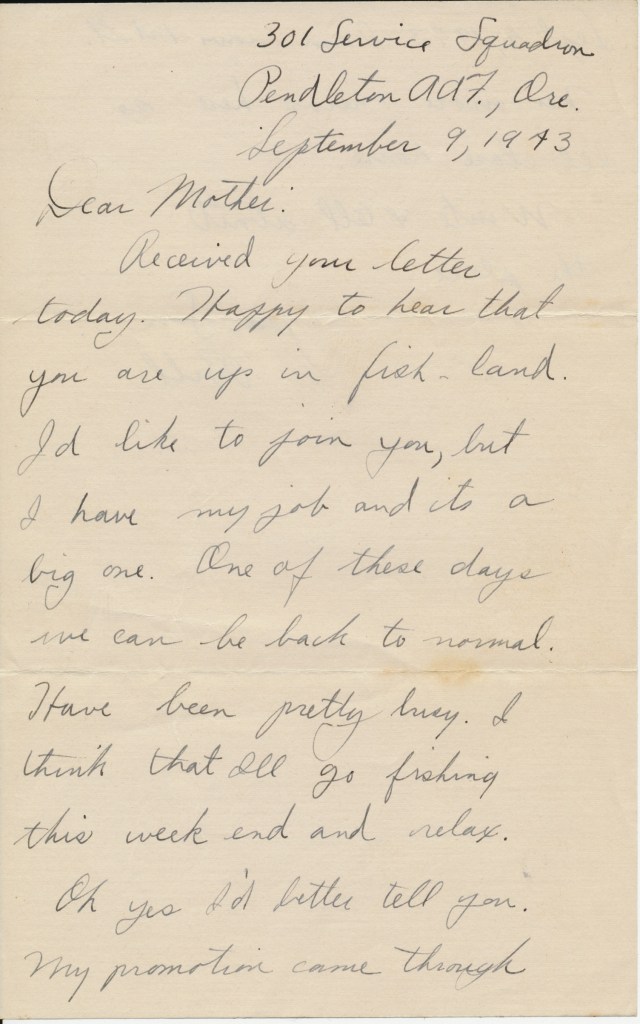 301 Service Squadron
Pendleton AAF., Ore.
September 9, 1943
Dear Mother:
Received your letter
today. Happy to hear that
you are up in fish-land.
I'd like to join you, but
I have my job and its a
big one. One of these days
we can be back to normal.
Have been pretty busy. I
think that Ill go fishing
this week end and relax.
Oh yes I'd better tell you.
My promotion came through